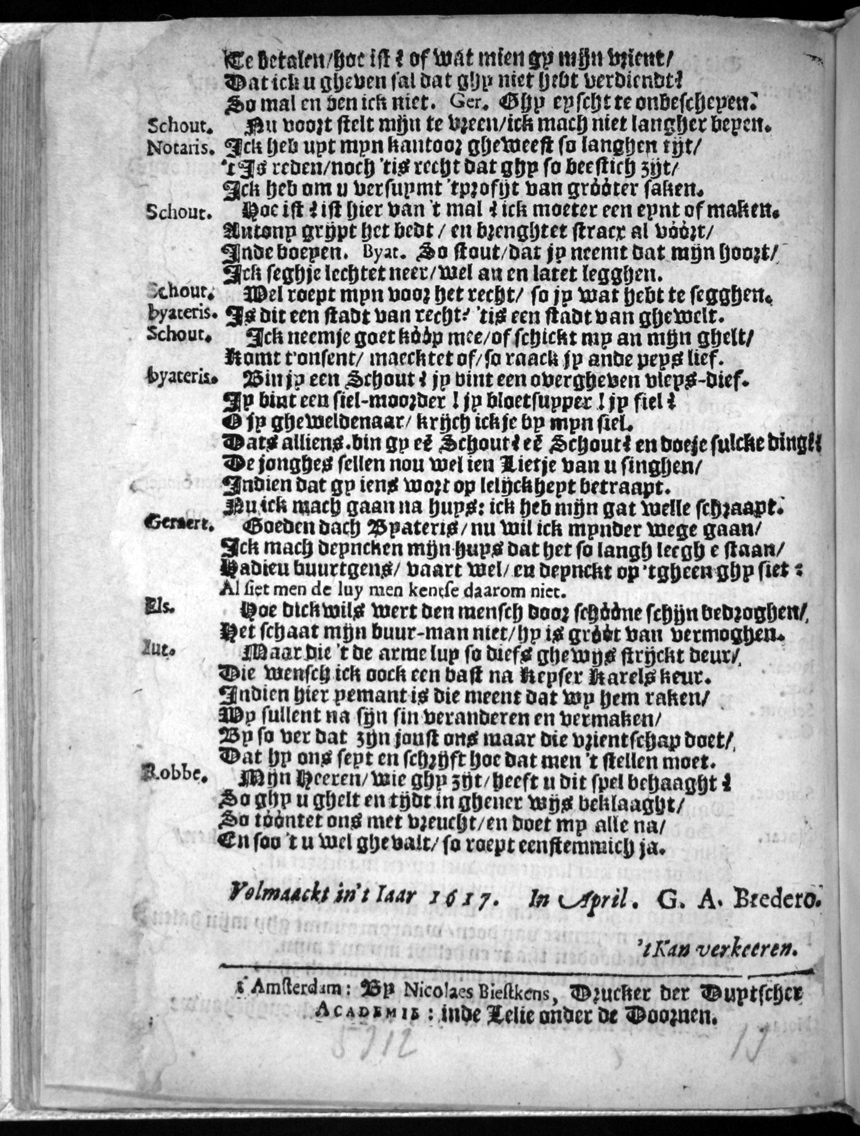 Te betalen/hoe ist? of wat mien gy mijn vrient/
Dat ick u gheven sal dat ghy niet hebt verdiendt?
So mal en ben ick niet. Ger. Ghy eyscht te onbescheyen.
Schout. Nu voort stelt mijn te vreen/ick mach niet langher beyen.
Notaris. Ick heb uyt myn kantoor gheweest so langhen tijt/
't Is reden/noch 'tis recht dat ghy so beestich zijt/
Ick heb om u versuymt 'tprofijt van gróóter saken.
Schout. Hoe ist? ist hier van 't mal? ick moeter een eynt of maken.
Antony grijpt het bedt/ en brenghtet stracx al vóórt/
Inde boeyen. Byat. So stout/dat jy neemt dat mijn hoort/
Ick segh je lechtet neer/wel an en latet legghen.
Schout. Wel roept myn voor het recht/ so jy wat hebt te segghen.
byateris. Is dit een stadt van recht? 'tis een stadt van ghewelt.
Schout. Ick neemje goet kóóp mee/of schickt my an mijn ghelt/
Komt t'onsent/ maecktet of/so raack jy ande peys lief.
byateris. Bin jy een Schout? jy bint een overgheven vleys-dief.
Jy bint een siel-moorder! jy bloetsupper! jy fiel?
O jy gheweldenaar/ krijch ick je by myn siel.
Dats alliens.bin gy eē Schout? eē Schout? en doeje sulcke dingē?
De jonghes sellen nou wel ien Lietje van u singhen/
Indien dat gy iens wort op lelijckheyt betraapt.
Nu ick mach gaan na huys: ick heb mijn gat welle schraapt.
Geraert. Goeden dach Byateris/nu wil ick mynder wege gaan/
Ick mach deyncken mijn huys dat het so langh leegh e staan/
Hadieu buurtgens/ vaart wel/en deynckt op 'tgheen ghy siet:
Al siet men de luy men kentse daarom niet.
Els. Hoe dickwils wert den mensch door schóóne schijn bedroghen/
Het schaat mijn buur-man niet/hy is gróót van vermoghen.
Iut. Maar die 't de arme luy so diefs ghewijs strijckt deur/
Die wensch ick oock een bast na Keyser Karels keur.
Indien hier yemant is die meent dat wy hem raken/
Wy sullent na sijn sin veranderen en vermaken/
By so ver dat zijn jonst ons maar die vrientschap doet/
Dat hy ons seyt en schrijft hoe dat men 't stellen moet.
Robbe. Mijn Heeren/wie ghy zijt/heeft u dit spel behaaght?
So ghy u ghelt en tijdt in ghener wijs beklaaght/
So tóóntet ons met vreucht/en doet my alle na/
En soo 't u wel ghevalt/so roept eenstemmich ja.
Volmaackt in't Iaar 1617. In April. G. A. Bredero.
't Kan verkeeren.
t' Amsterdam: By Nicolaes Biestkens, Drucker der Duytscher
ACADEMIE: inde Lelie onder de Doornen.